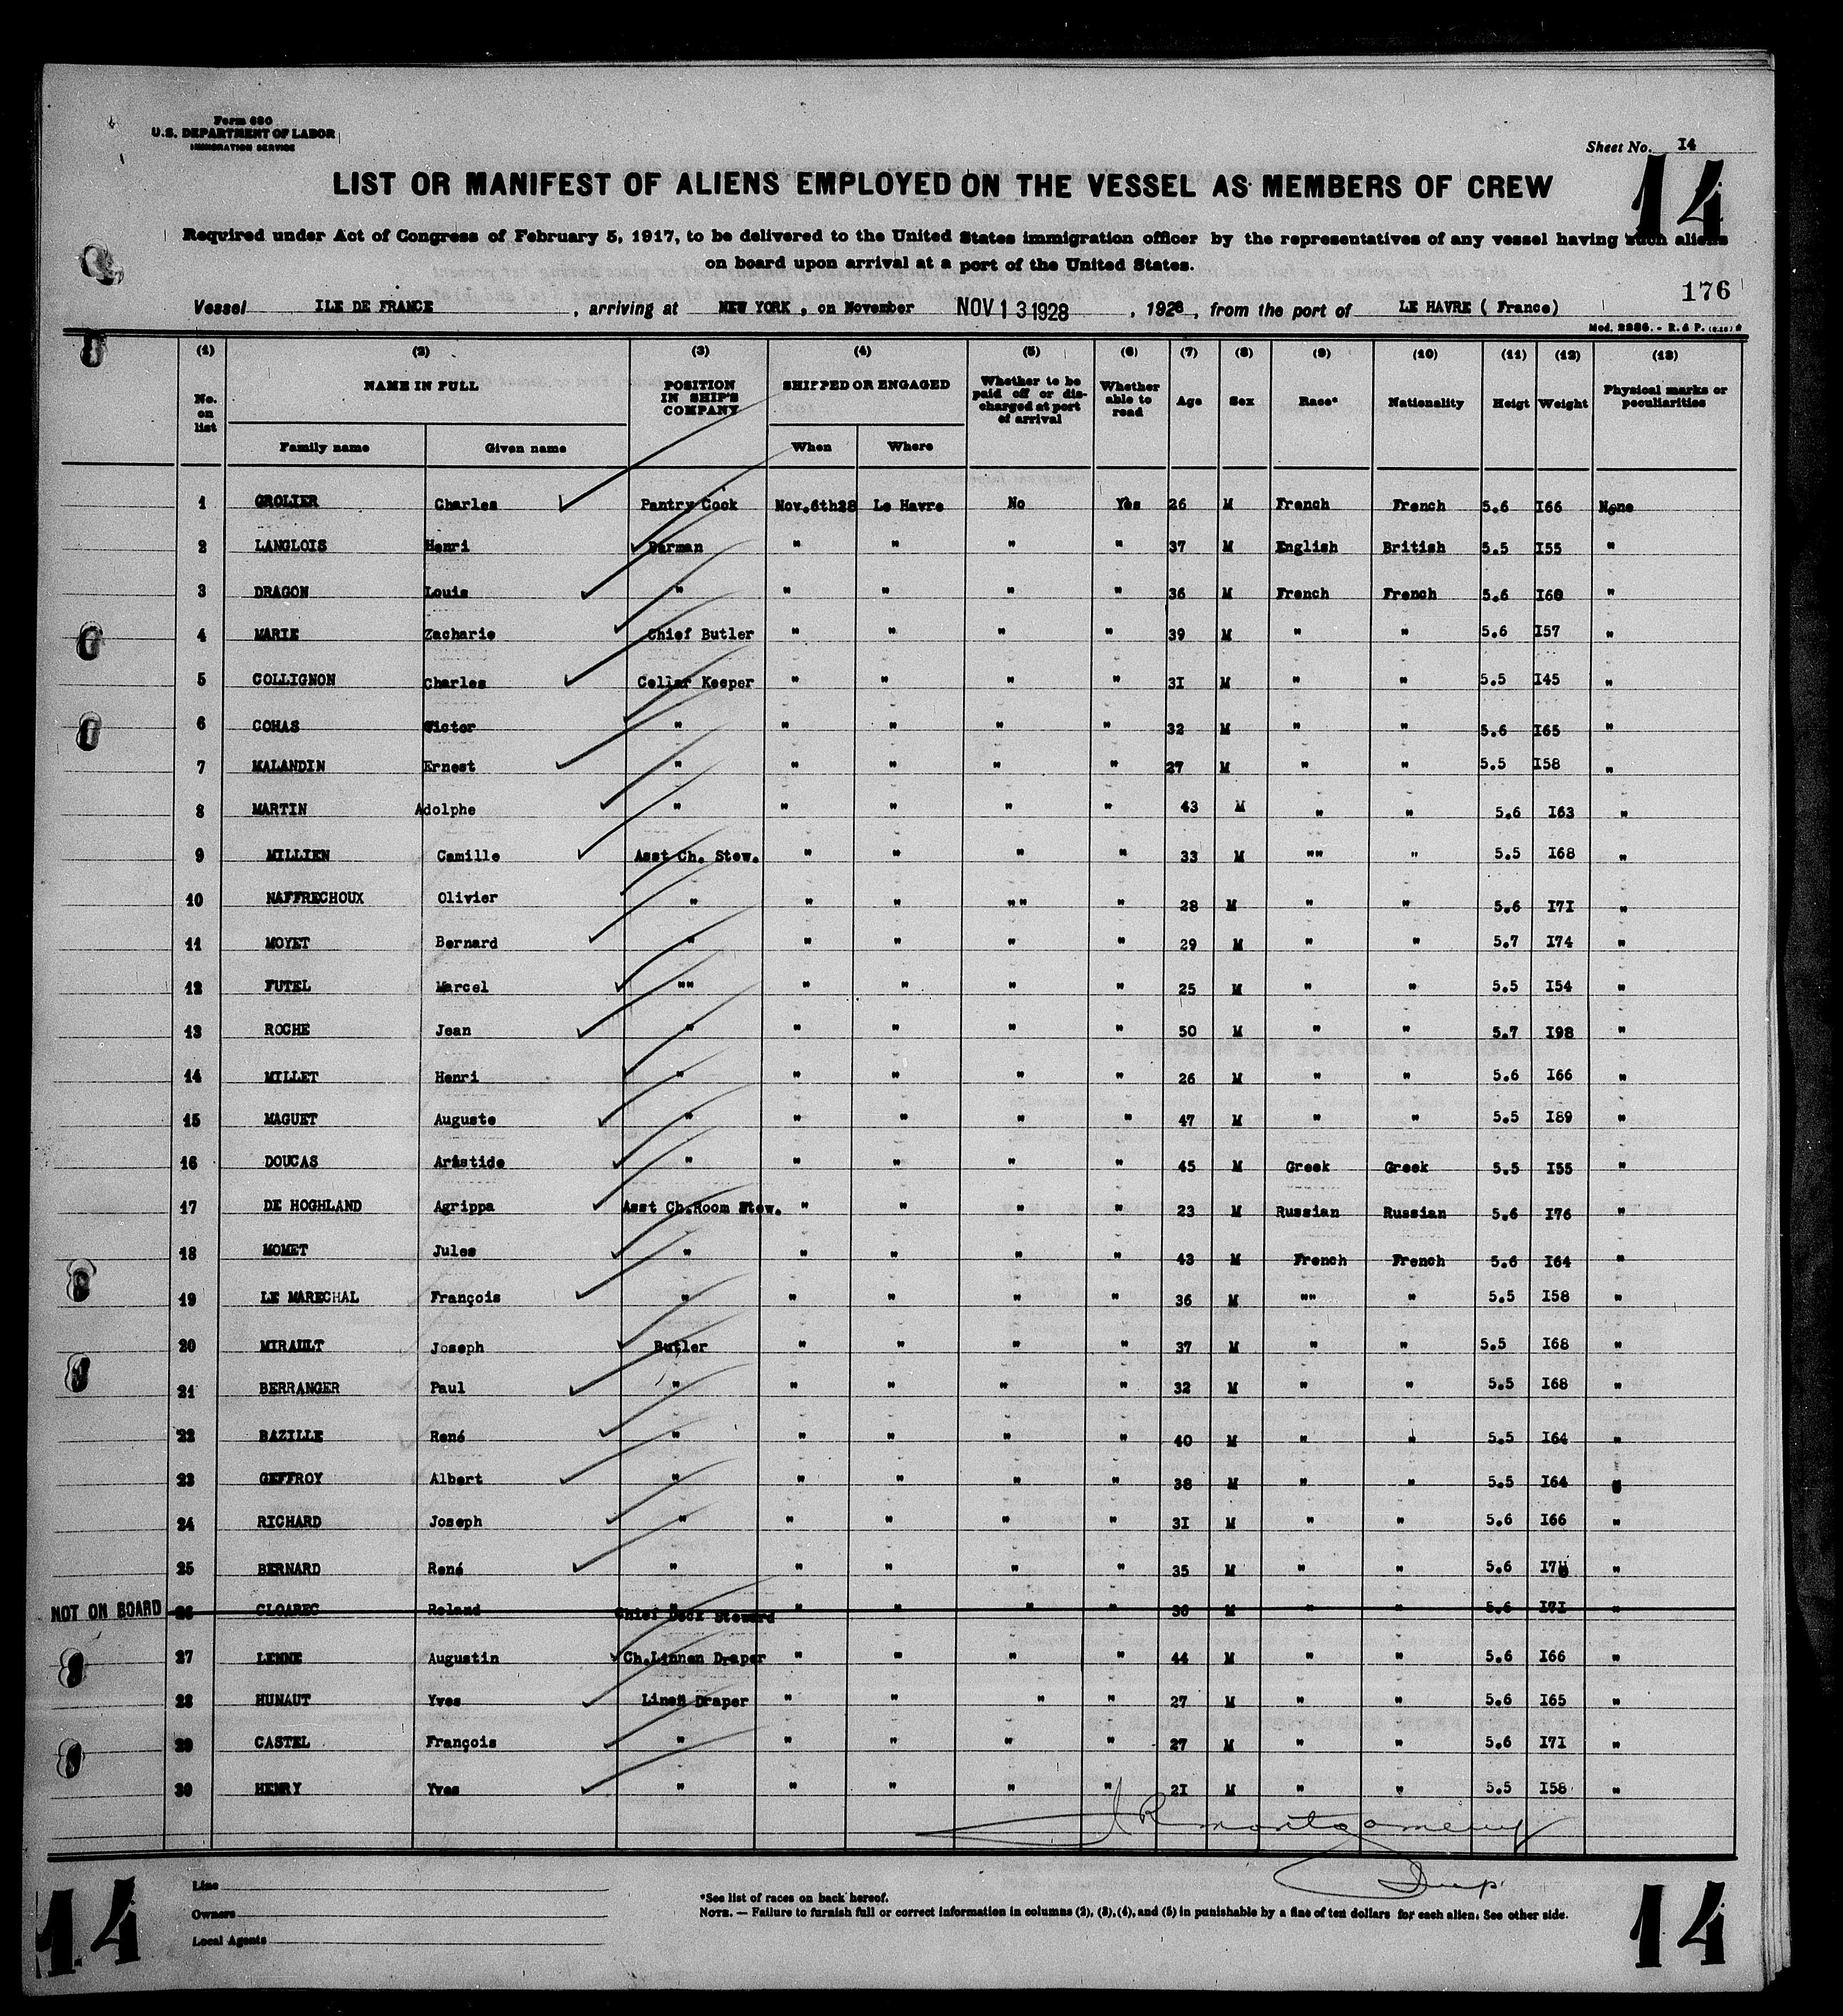 Form 680
U.S. DEPARTMENT OF LABOR
IMMIGRATION SERVICE
Sheet No. I4
14
LIST OR MANIFEST OF ALIENS EMPLOYED ON THE VESSEL AS MEMBERS OF CREW
Required under Act of Congress of February 5, 1917, to be delivered to the United States immigration officer by the representatives of any vessel having such aliens
on board upon arrival at a port of the United States.
176
Vessel ILE DE FRANCE, arriving at NEW YORK, on November NOV 13 1928, 1928, from the port of LE HAVRE ( France)
Mod. 2286. - R. & P.
(1) (2) (3) (4) (5) (6) (7) (8) (9) (10) (11) (12) (13)
No. on list NAME IN FULL POSITION IN SHIP'S COMPANY SHIPPED OR ENGAGED Whether to be paid off or discharged at port of arrival Whether able to read Age Sex Race* Nationality Heigt Weight Physical marks or peculiarities
Family name Given name When Where
1 GROLIER Charles Pantry Cook Nov.6th28 Le Havre No Yes 26 M French French 5.6 I66 None
2 LANGLOIS Henri Barman " " " " 37 M English British 5.5 I55 "
3 DRAGON Louis " " " " " 36 M French French 5.6 I60 "
4 MARIE Zacharie Chief Butler " " " " 39 M " " 5.6 I57 "
5 COLLIGNON Charles Cellar Keeper " " " " 3I M " " 5.5 I45 "
6 COHAS Victor " " " " " 32 M " " 5.6 I65 "
7 MALANDIN Ernest " " " " " 27 M " " 5.5 I58 "
8 MARTIN Adolphe " " " " " 43 M " " 5.6 I63 "
9 MILLIEN Camille Asst Ch. Stew. " " " " 33 M "" " 5.5 I68 "
10 NAFFRECHOUX Olivier " " " "" " 28 M " " 5.6 I7I "
11 MOYET Bernard " " " " " 29 M " " 5.7 I74 "
12 FUTEL Marcel "" " " " " 25 M " " 5.5 I54 "
13 ROCHE Jean " " " " " 50 M " " 5.7 I98 "
14 MILLET Henri " " " " " 26 M " " 5.6 I66 "
15 MAGUET Auguste " " " " " 47 M " " 5.5 I89 "
16 DOUCAS Aristide " " " " " 45 M Greek Greek 5.5 I55 "
17 DE HOGHLAND Agrippa Asst Ch.Room Stew. " " " " 23 M Russian Russian 5.6 I76 "
18 MOMET Jules " " " " " 43 M French French 5.6 I64 "
19 LE MARECHAL François " " " " " 36 M "" " 5.5 I58 "
20 MIRAULT Joseph Butler " " " " 37 M " " 5.5 I68 "
21 BERRANGER Paul " " " " " 32 M " " 5.5 I68 "
22 BAZILLE René " " " " " 40 M " " 5.5 I64 "
23 GEFFROY Albert " " " " " 38 M " " 5.5 I64 "
24 RICHARD Joseph " " " " " 3I M " " 5.6 I66 "
25 BERNARD René " " " " " 35 M " " 5.6 "
NOT ON BOARD 26 CLOAREC Roland Chief Deck Steward " " " " 30 M " " 5.6 I7I "
27 LENNE Augustin Ch.Linnen Draper " " " " 44 M " " 5.6 I66 "
28 HUNAUT Yves Linen Draper " " " " 27 M " " 5.6 I65 "
29 CASTEL François " " " " " 27 M " " 5.6 I7I "
30 HENRY Yves " " " " " 2I M " " 5.5 I58 "
JR Montgomery
Insp.
Line
Owners
Local Agents
*See list of races on back hereof.
NOTE. — Failure to furnish full or correct information in columns (2), (3), (4), and (5) in punishable by a fine of ten dollars for each alien. See other side.
14
14